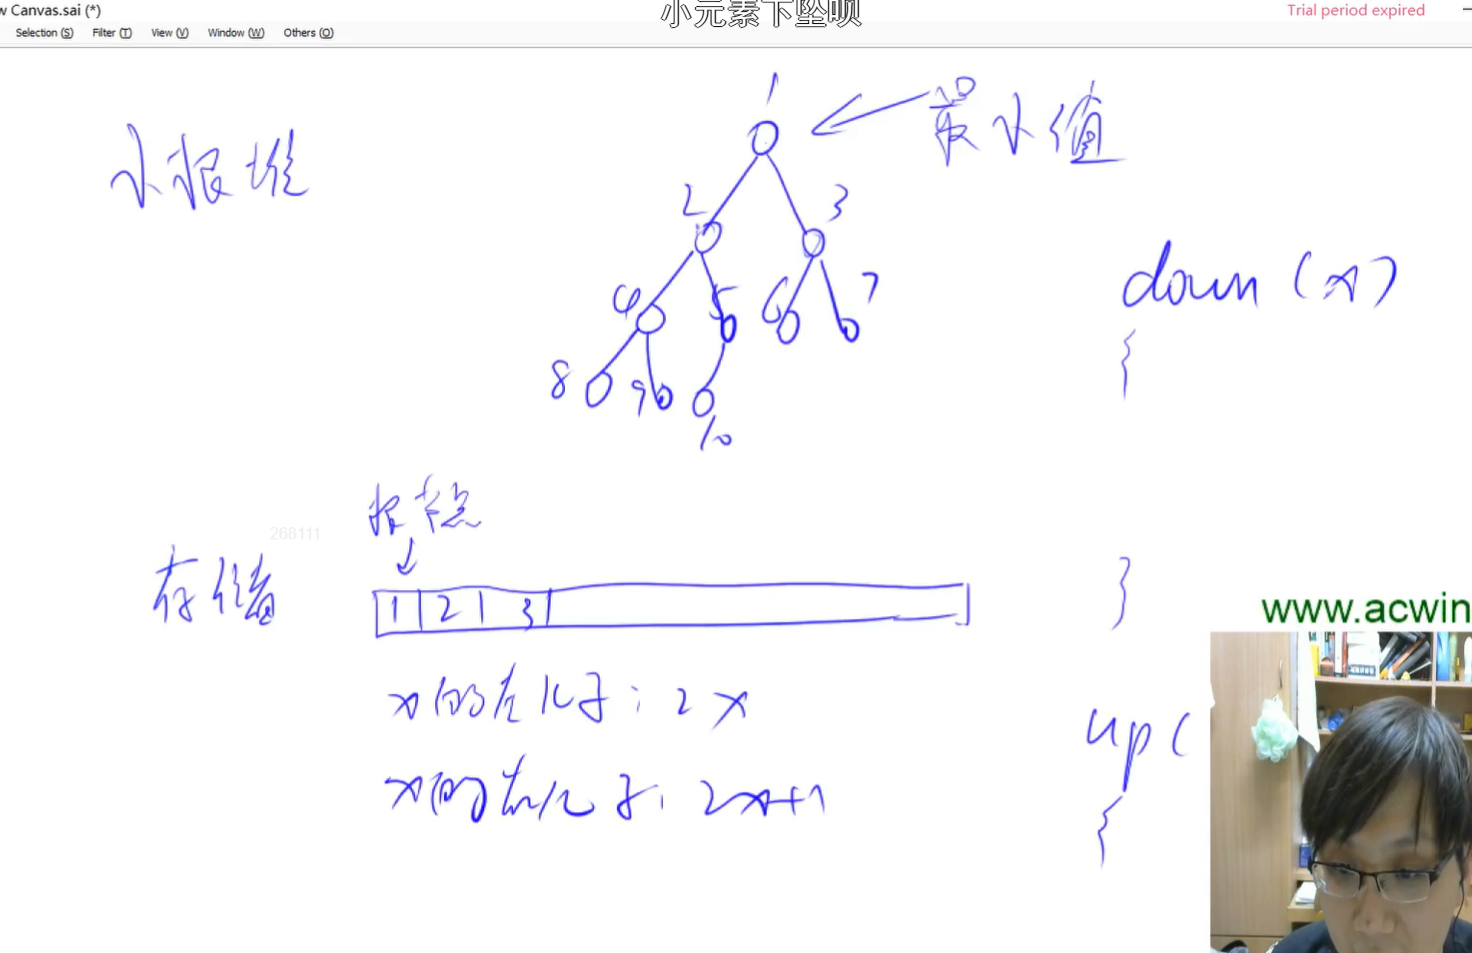 w Canvas.sai (*)
小元素下坠呗
Trial period expired
Selection (S) Filter (T) View (V) Window (W) Others (O)
1
最小值
小根堆
2 3
down (x)
4 5 6 7
{
8 9
10
根节点
268111
存储
1 2 3
}
www.acwin
x的左儿子: 2x
up(
x的右儿子: 2x+1
{